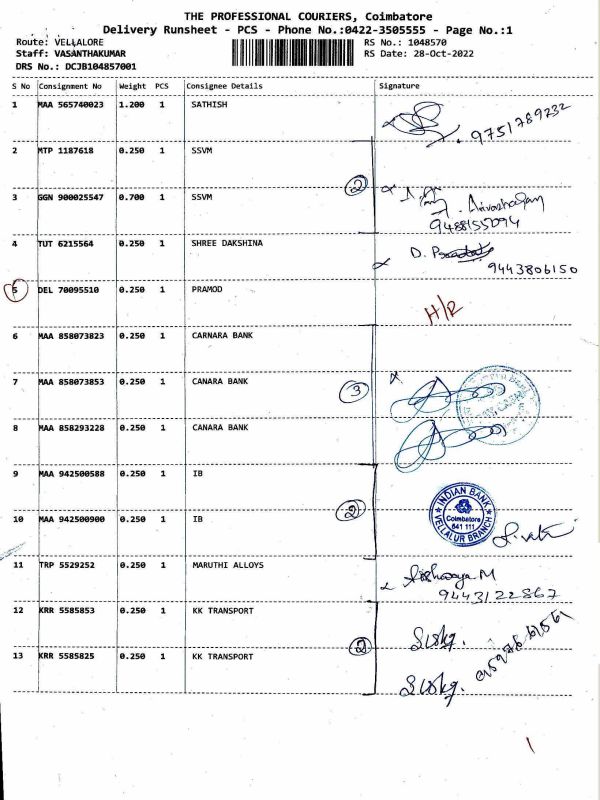 THE PROFESSIONAL COURIERS, Coimbatore
Delivery Runsheet - PCS - Phone No.:0422-3505555 - Page No.:1
Route: VELLALORE
RS No.: 1048570
Staff: VASANTHAKUMAR
RS Date: 28-Oct-2022
DRS No.: DCJB104857001
S No Consignment No Weight PCS Consignee Details Signature
1 MAA 565740023 1.200 1 SATHISH
9751789232
2 MTP 1187618 0.250 1 SSVM
2
3 GGN 900025547 0.700 1 SSVM
9488155094
4 TUT 6215564 0.250 1 SHREE DAKSHINA
D.
9443806150
5 DEL 70095510 0.250 1 PRAMOD
H/R
6 MAA 858073823 0.250 1 CARNARA BANK
7 MAA 858073853 0.250 1 CANARA BANK
3
8 MAA 858293228 0.250 1 CANARA BANK
9 MAA 942500588 0.250 1 IB
2
INDIAN BANK
Coimbatore
641 111
VELLALUR BRANCH
10 MAA 942500900 0.250 1 IB
11 TRP 5529252 0.250 1 MARUTHI ALLOYS
Aishwarya M
9443122867
12 KRR 5585853 0.250 1 KK TRANSPORT
2
13 KRR 5585825 0.250 1 KK TRANSPORT